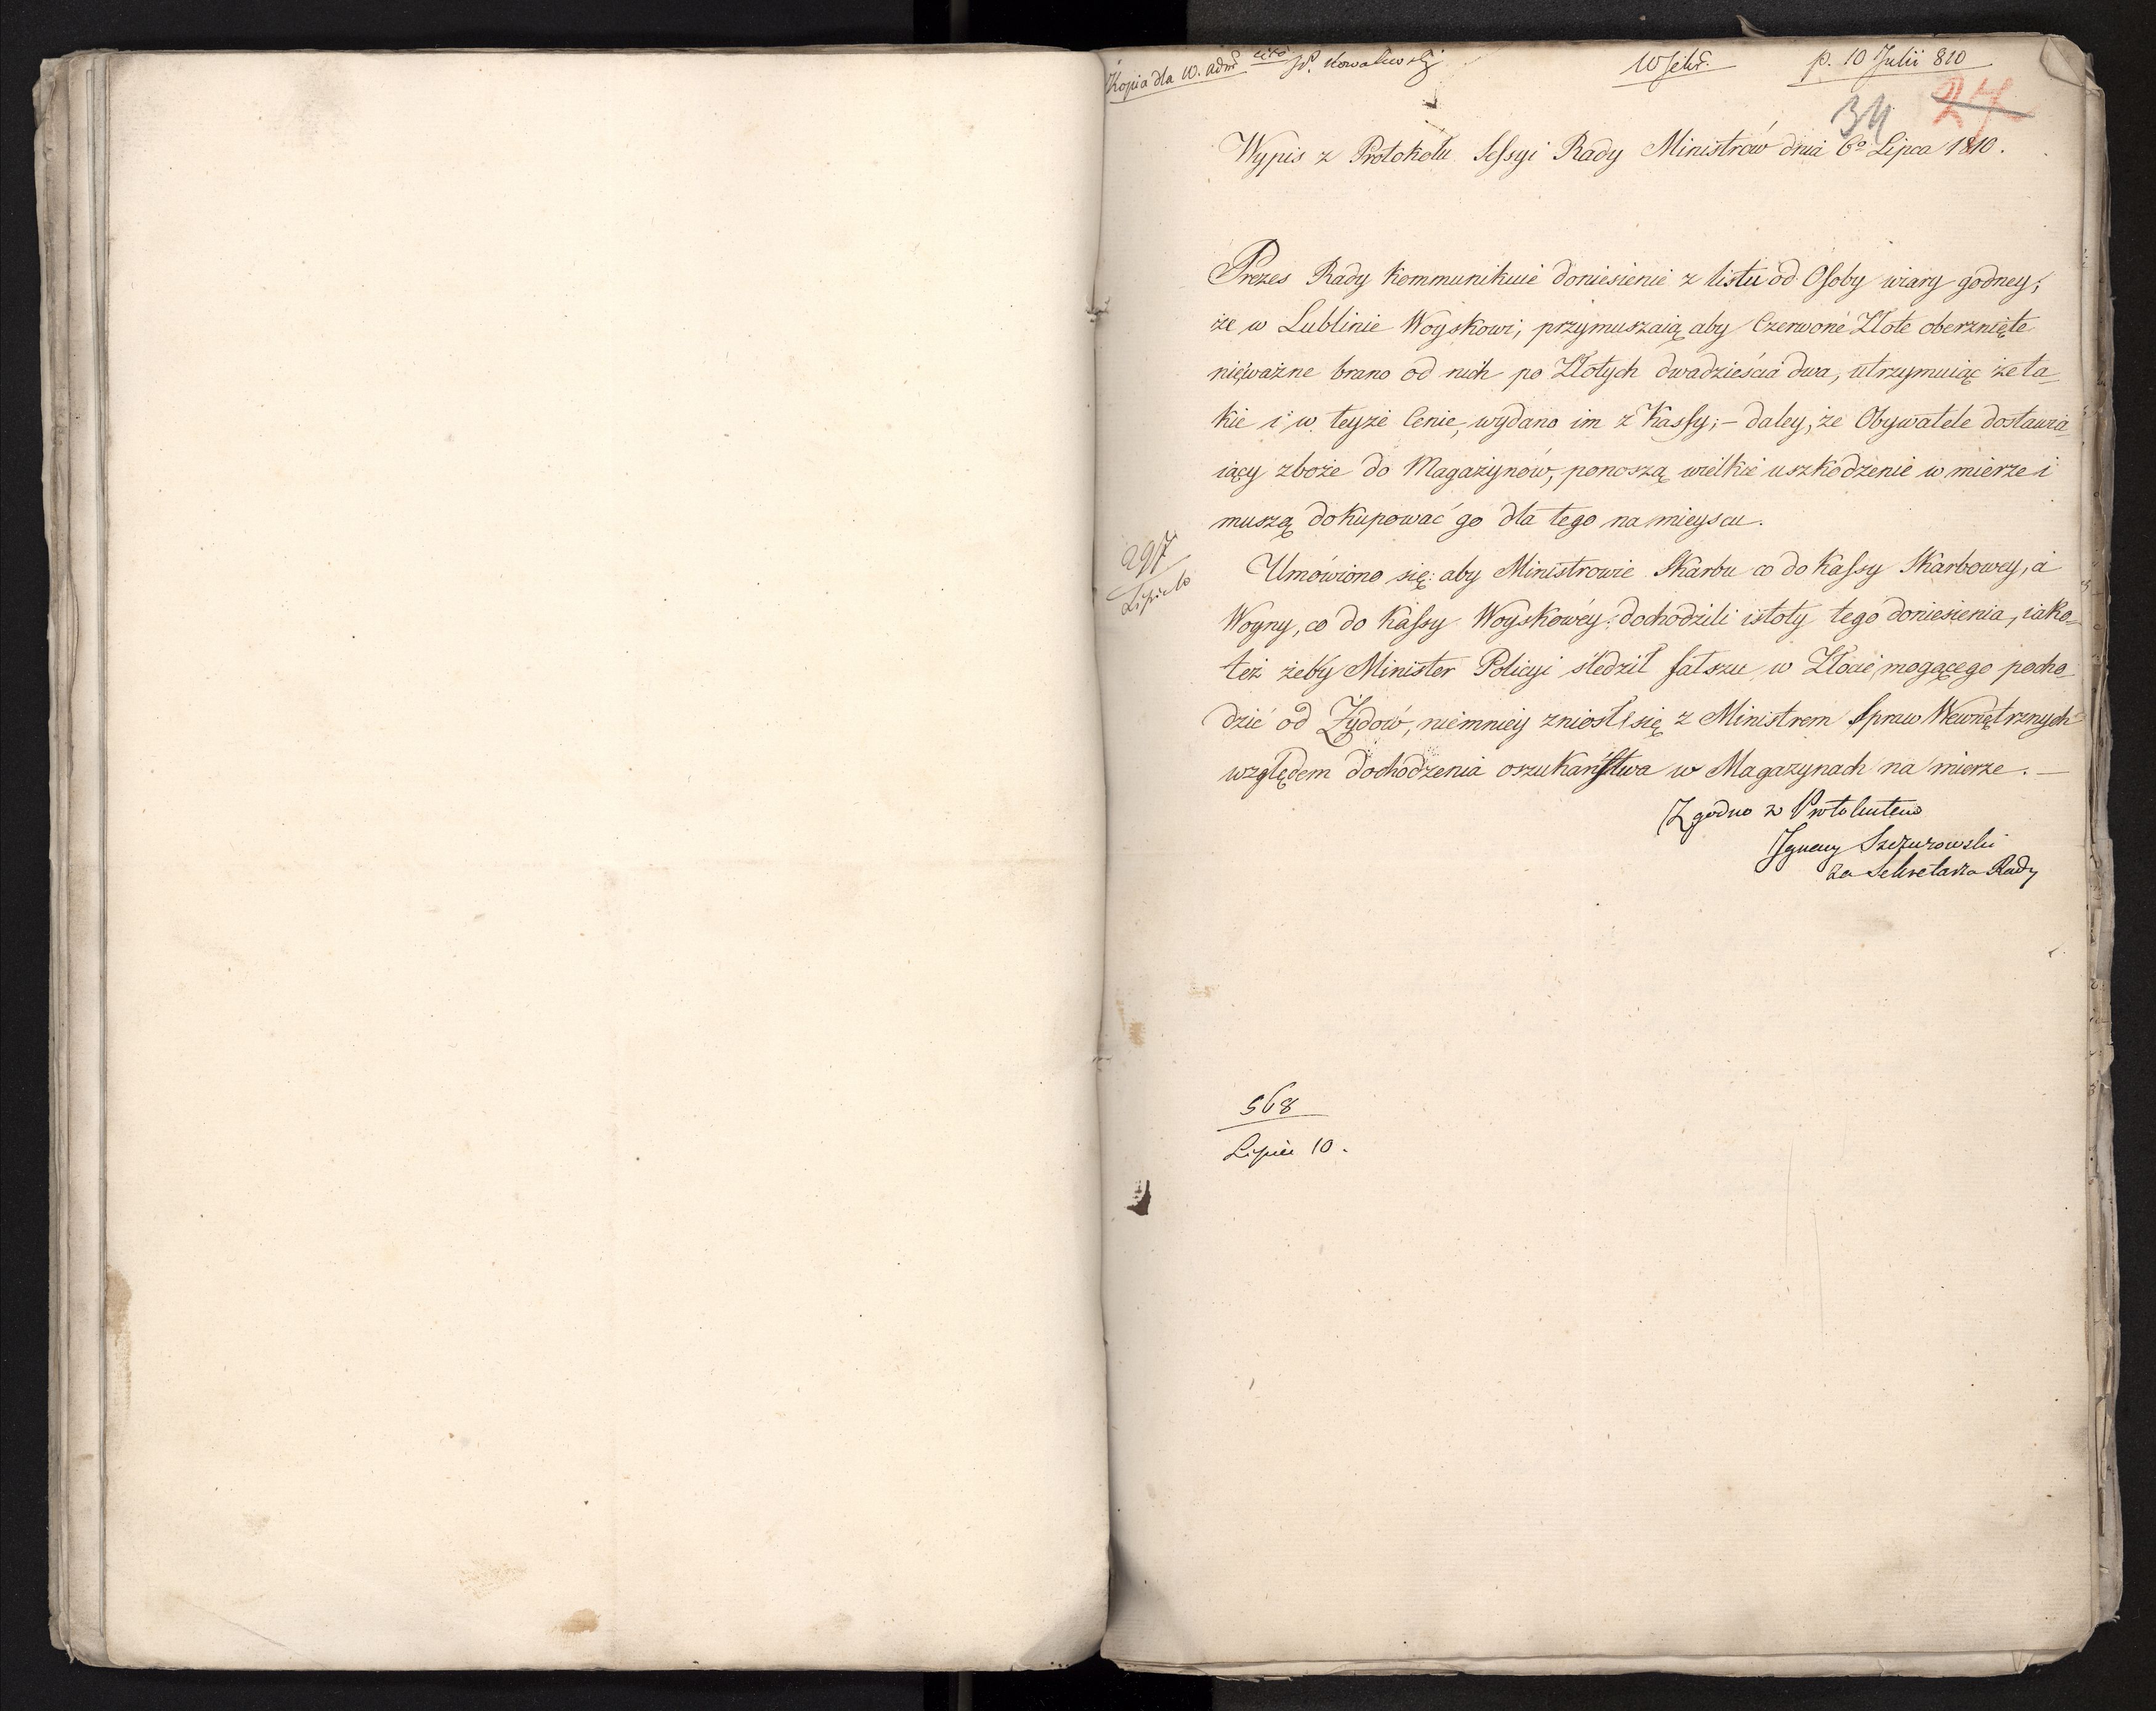 Kopia dla W. Adm. cito
W. Kowalewski
W Sekr.
p. 10 Julii 810
34 27
Wypis z Protokołu Sessyi Rady Ministrów dnia 6º Lipca 1810.
Prezes Rady kommunikuie doniesienie z listu od Osoby wiary godney;
że w Lublinie Woyskowi, przymuszaią aby Czerwone Złote oberznięte
nieważne brano od nich po Złotych dwadzieścia dwa, utrzymuiąc że ta-
kie i w teyże Cenie, wydano im z Kassy; – daley, że Obywatele dostawia-
iący zboże do Magazynów, ponoszą wielkie uszkodzenie w mierze i
muszą dokupować go dla tego na mieyscu.
297
Lipca 10
Umówiono się: aby Ministrowie Skarbu co do Kassy Skarbowey, a
Woyny, co do Kassy Woyskowey: dochodzili istoty tego doniesienia, iako-
też żeby Minister Policyi śledził fałszu w Złocie, mogącego pocho-
dzić od Żydów, niemniey zniosł się z Ministrem Spraw Wewnętrznych
względem dochodzenia oszukaństwa w Magazynach na mierze. —
Zgodno z Protokułem
Ignacy Szczurowski
Za Sekretarza Rady
568
Lipiec 10.